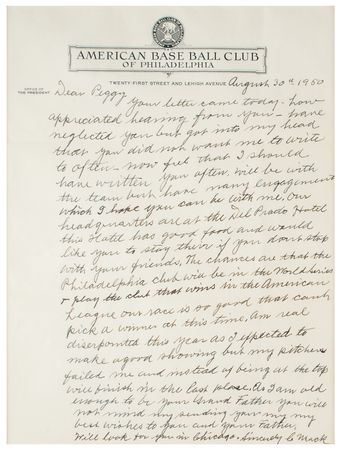 AMERICAN BASE BALL CLUB
OF PHILADELPHIA
TWENTY-FIRST STREET AND LEHIGH AVENUE
OFFICE OF
THE PRESIDENT
August 30th 1950
Dear Peggy
Your letter came today - how
appreciated hearing from you - have
neglected you but got into my head
that you did not want me to write
to often - now feel that I should
have written you often. Will be with
the team but have many engagements
which I hope you can be with me, Our
headquarters are at the Del Prado Hotel
this Hotel has good food and would
like you to stay there if you dont stop
with your friends, The chances are that the
Philadelphia club will be in the World Series
& play the club that wins in the American
League our race is so good that cant
pick a winner at this time, Am real
disapointed this year as I expected to
make a good showing but my pitchers
failed me and instead of being at the top
will finish in the last place. As I am old
enough to be your Grand Father you will
not mind my sending you my my
best wishes to you and your Father.
Will look for you in Chicago. Sincerely C. Mack